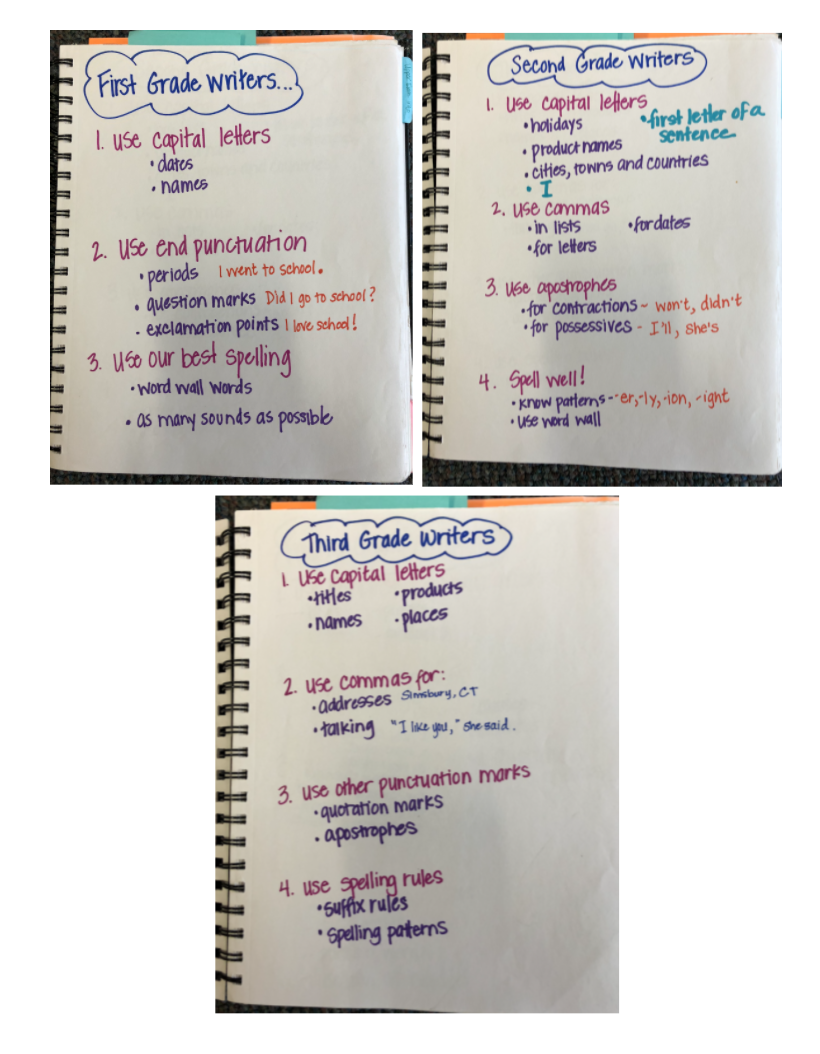 First Grade Writers...
1. use capital letters
• dates
• names
2. Use end punctuation
• periods I went to school.
• question marks Did I go to school?
• exclamation points I love school!
3. Use our best spelling
• word wall words
• as many sounds as possible
Second Grade Writers
1. Use capital letters
• holidays • first letter of a
sentence
• product names
• cities, towns and countries
• I
2. Use commas
• in lists • for dates
• for letters
3. Use apostrophes
• for contractions - won't, didn't
• for possessives - I'll, she's
4. Spell well!
• know patterns - -er, -ly, -ion, -ight
• use word wall
Third Grade Writers
1. Use capital letters
• titles • products
• names • places
2. Use commas for:
• addresses Simsbury, CT
• talking "I like you," she said.
3. Use other punctuation marks
• quotation marks
• apostrophes
4. Use spelling rules
• suffix rules
• spelling patterns